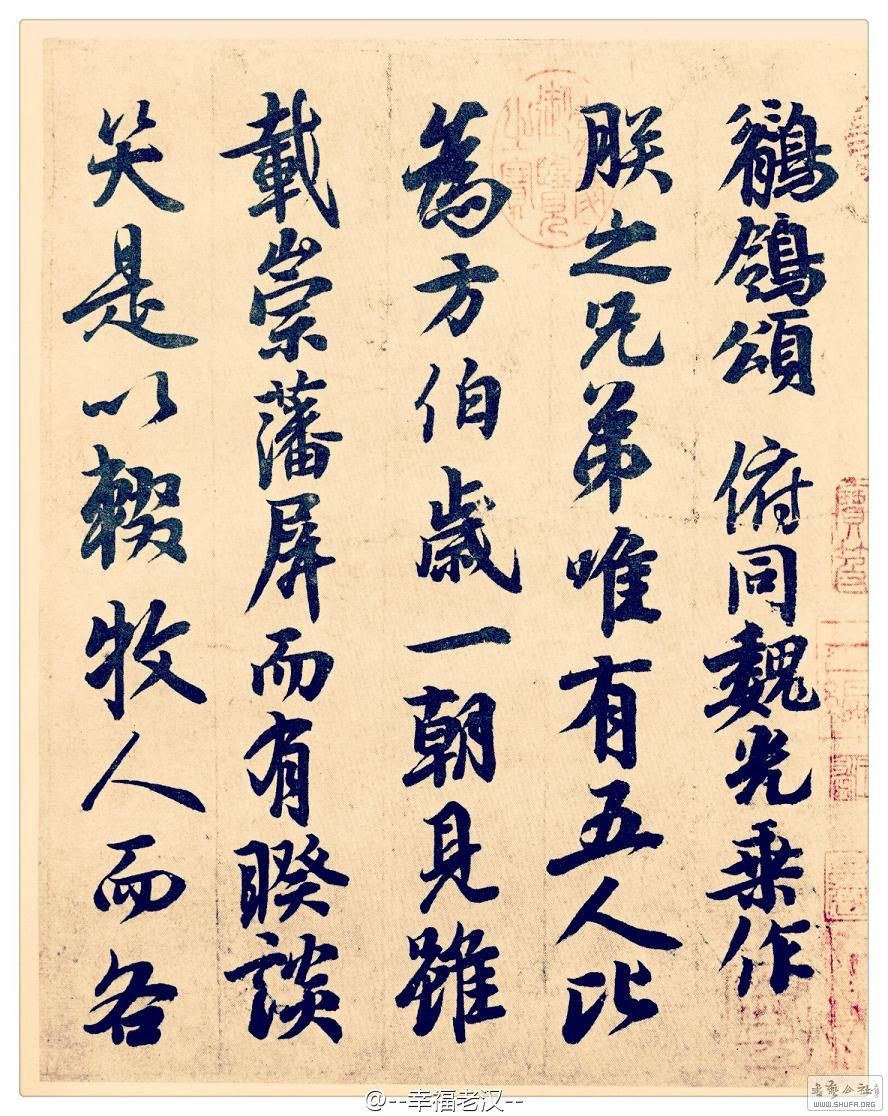 鶺鴒頌 俯同魏光乗作
朕之兄弟唯有五人比
為方伯歳一朝見雖
載崇藩屏而有睽談
笑是以輟牧人而各
@--幸福老汉--
书艺公社
WWW.SHUFA.ORG